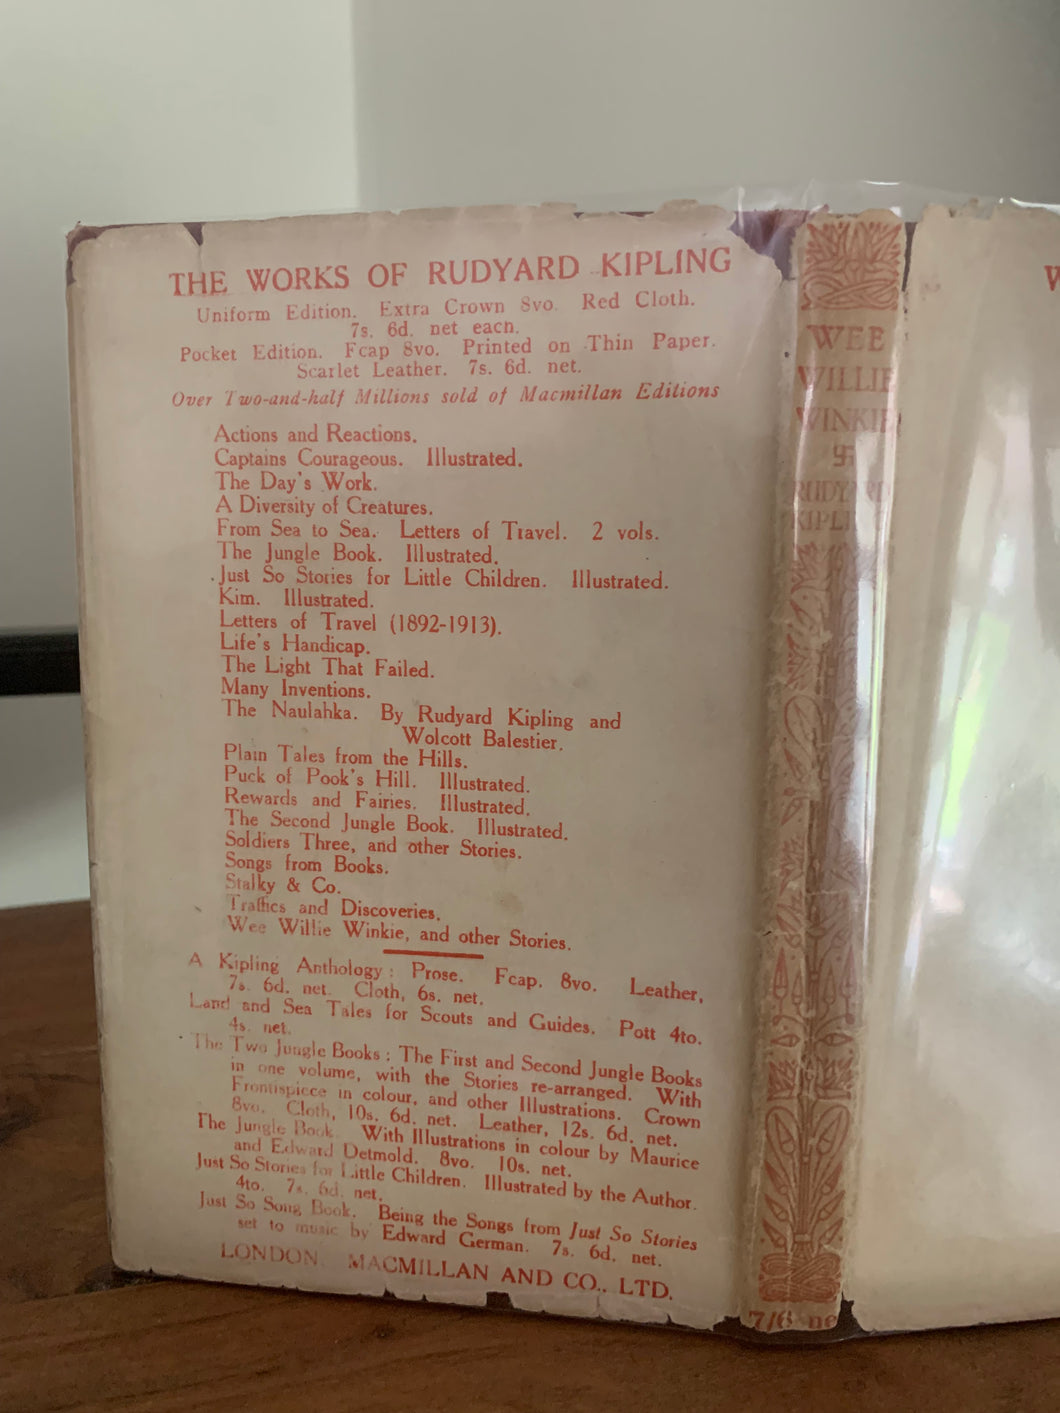 THE WORKS OF RUDYARD KIPLING
Uniform Edition. Extra Crown 8vo. Red Cloth.
7s. 6d. net each.
Pocket Edition. Fcap 8vo. Printed on Thin Paper.
Scarlet Leather. 7s. 6d. net.
Over Two-and-half Millions sold of Macmillan Editions
Actions and Reactions.
Captains Courageous. Illustrated.
The Day's Work.
A Diversity of Creatures.
From Sea to Sea. Letters of Travel. 2 vols.
The Jungle Book. Illustrated.
Just So Stories for Little Children. Illustrated.
Kim. Illustrated.
Letters of Travel (1892-1913).
Life's Handicap.
The Light That Failed.
Many Inventions.
The Naulahka. By Rudyard Kipling and
Wolcott Balestier.
Plain Tales from the Hills.
Puck of Pook's Hill. Illustrated.
Rewards and Fairies. Illustrated.
The Second Jungle Book. Illustrated.
Soldiers Three, and other Stories.
Songs from Books.
Stalky & Co.
Traffics and Discoveries.
Wee Willie Winkie, and other Stories.
A Kipling Anthology: Prose. Fcap. 8vo. Leather,
7s. 6d. net. Cloth, 6s. net.
Land and Sea Tales for Scouts and Guides. Pott 4to.
4s. net.
The Two Jungle Books: The First and Second Jungle Books
in one volume, with the Stories re-arranged. With
Frontispiece in colour, and other Illustrations. Crown
8vo. Cloth, 10s. 6d. net. Leather, 12s. 6d. net.
The Jungle Book. With Illustrations in colour by Maurice
and Edward Detmold. 8vo. 10s. net.
Just So Stories for Little Children. Illustrated by the Author.
4to. 7s. 6d. net.
Just So Song Book. Being the Songs from Just So Stories
set to music by Edward German. 7s. 6d. net.
LONDON: MACMILLAN AND CO., LTD.
WEE
WILLIE
WINKIE
卐
RUDYARD
KIPLING
7/6 ne
W